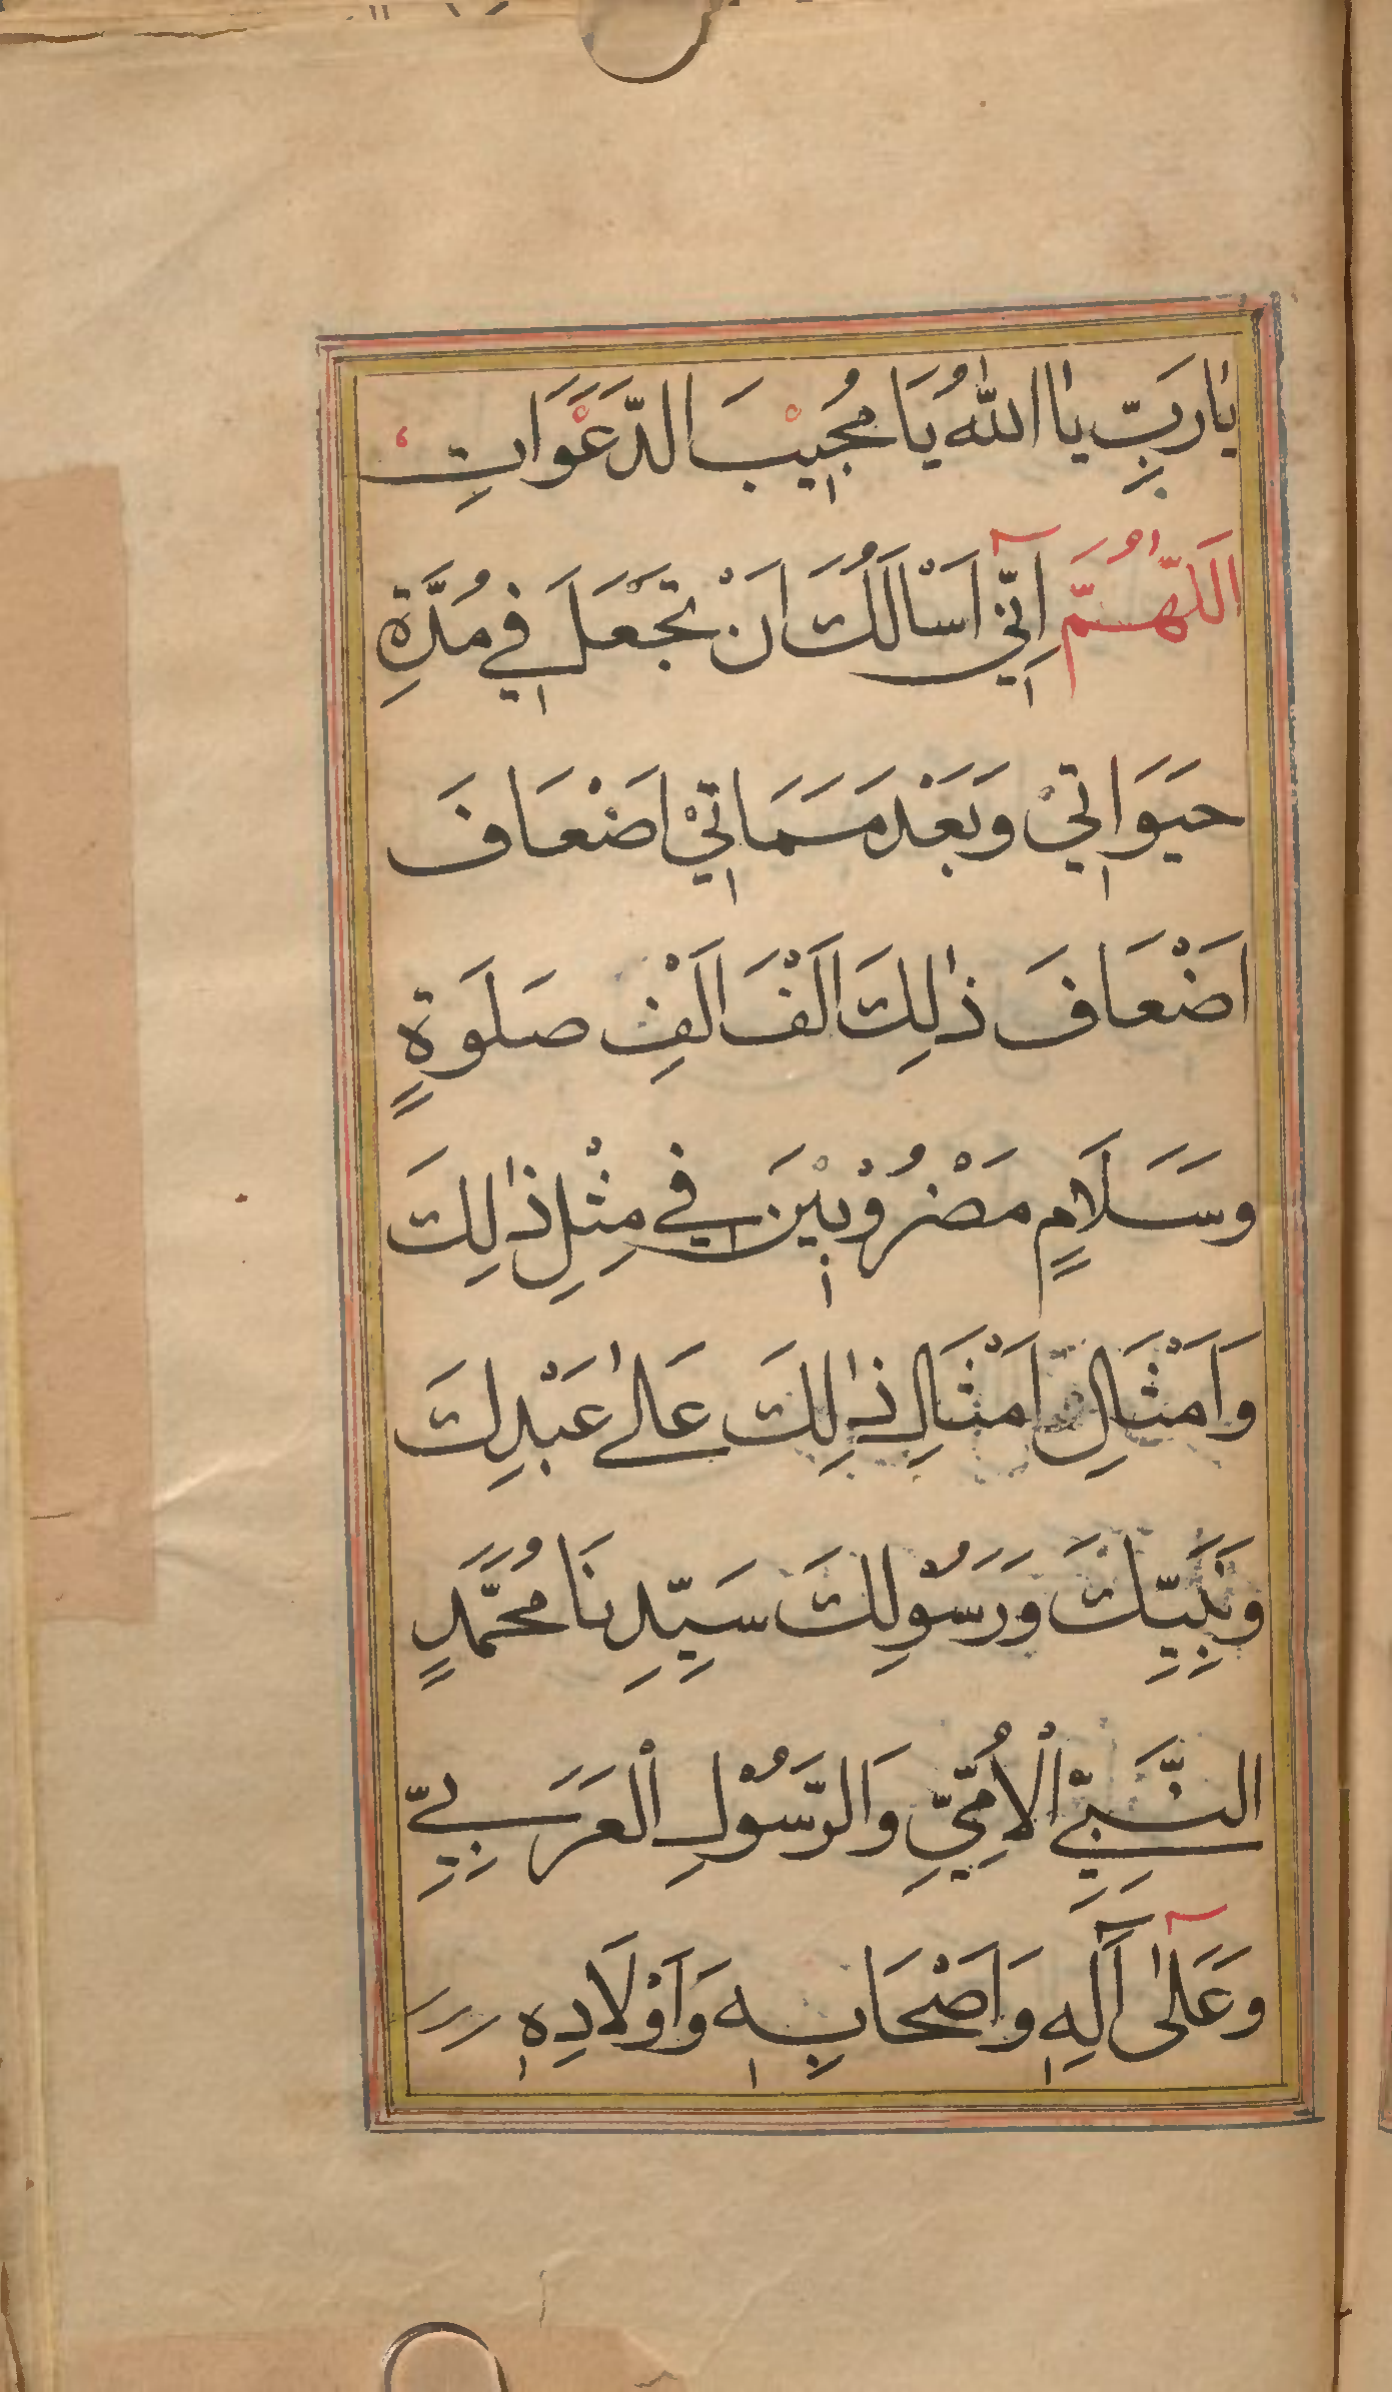 يَارَبِّ يَا اَللّٰهُ يَا مُجِيْبَ الدَّعْوَاتِ
اَللّٰهُمَّ اِنِّيٓ اَسْاَلُكَ اَنْ تَجْعَلَ فِي مُدَّةِ
حَيَوَاتِيْ وَبَعْدَ مَمَاتِيْ اَضْعَافَ
اَضْعَافَ ذٰلِكَ اَلْفَ اَلْفِ صَلَوةٍ
وَسَلَامٍ مَضْرُوْبَيْنِ فِي مِثْلِ ذٰلِكَ
وَاَمْثَالِ اَمْثَالِ ذٰلِكَ عَلٰى عَبْدِكَ
وَنَبِيِّكَ وَرَسُوْلِكَ سَيِّدِنَا مُحَمَّدٍ
النَّبِيِّ الْاُمِّيِّ وَالرَّسُوْلِ الْعَرَبِيِّ
وَعَلٰٓى آلِهٖ وَاَصْحَابِهٖ وَاَوْلَادِهٖ